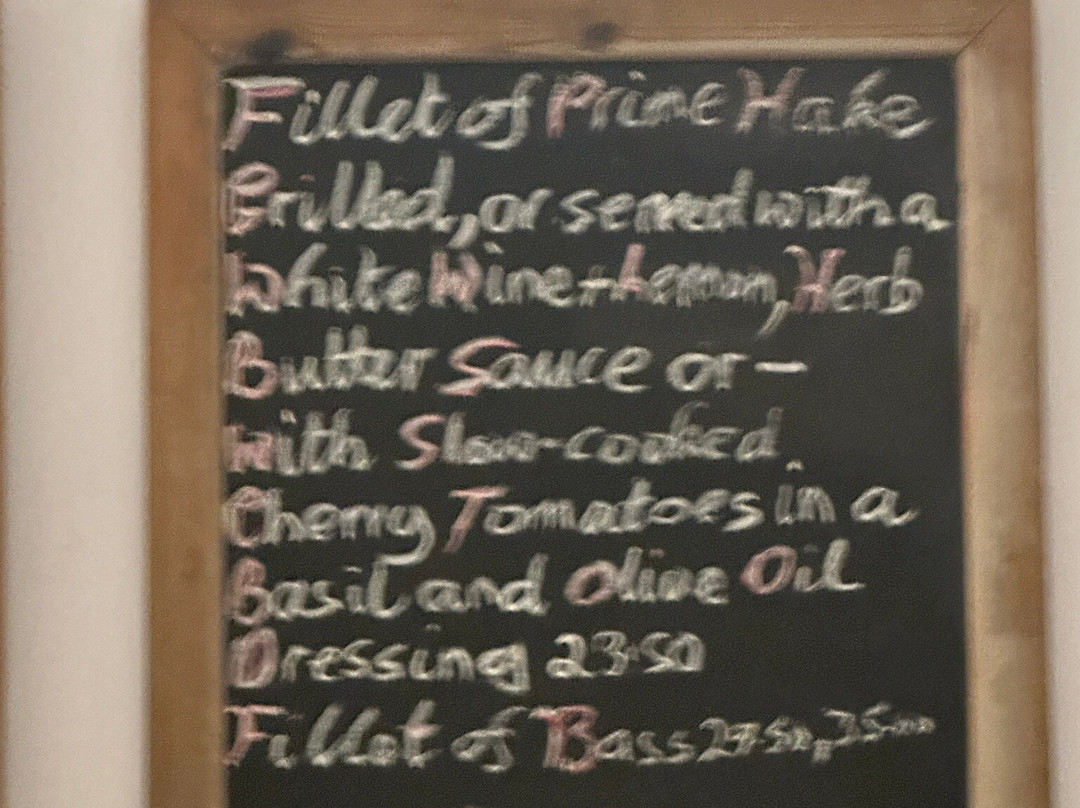 Fillet of Prime Hake
Grilled, or served with a
White Wine + Lemon, Herb
Butter Sauce or –
with Slow-cooked
Cherry Tomatoes in a
Basil and Olive Oil
Dressing 23.50
Fillet of Bass